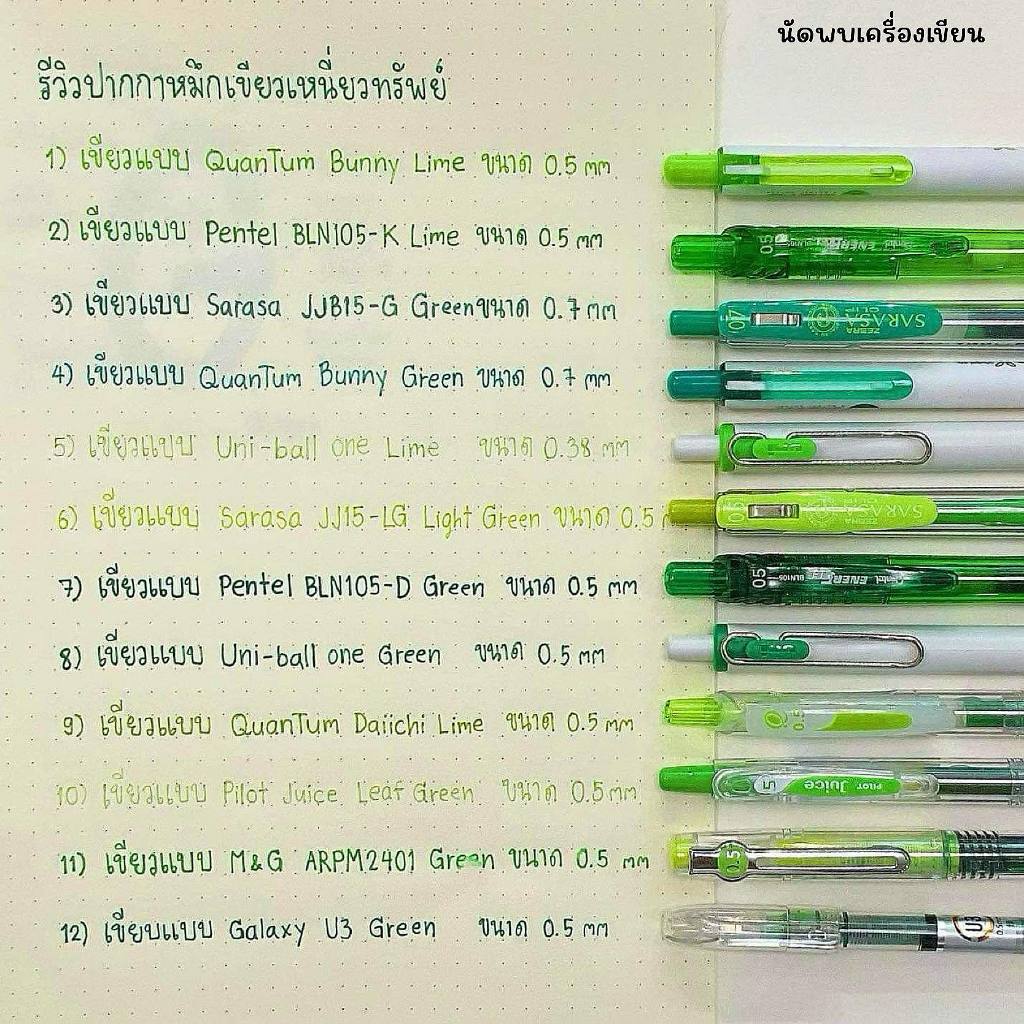 นัดพบเครื่องเขียน
รีวิวปากกาหมึกเขียวเหนี่ยวทรัพย์
1) เขียวแบบ QuanTum Bunny Lime ขนาด 0.5 mm
2) เขียวแบบ Pentel BLN105-K Lime ขนาด 0.5 mm
3) เขียวแบบ Sarasa JJB15-G Green ขนาด 0.7 mm
4) เขียวแบบ QuanTum Bunny Green ขนาด 0.7 mm
5) เขียวแบบ Uni-ball one Lime ขนาด 0.38 mm
6) เขียวแบบ Sarasa JJ15-LG Light Green ขนาด 0.5
7) เขียวแบบ Pentel BLN105-D Green ขนาด 0.5 mm
8) เขียวแบบ Uni-ball one Green ขนาด 0.5 mm
9) เขียวแบบ QuanTum Daiichi Lime ขนาด 0.5 mm
10) เขียวแบบ Pilot Juice Leaf Green ขนาด 0.5 mm
11) เขียวแบบ M&G ARPM2401 Green ขนาด 0.5 mm
12) เขียบแบบ Galaxy U3 Green ขนาด 0.5 mm
05 Pentel ENER
07 ZEBRA SARASA CLIP
ZEBRA SARASA
05 BLN105 Pentel ENER
0.5
5 PILOT Juice
0.5
U3